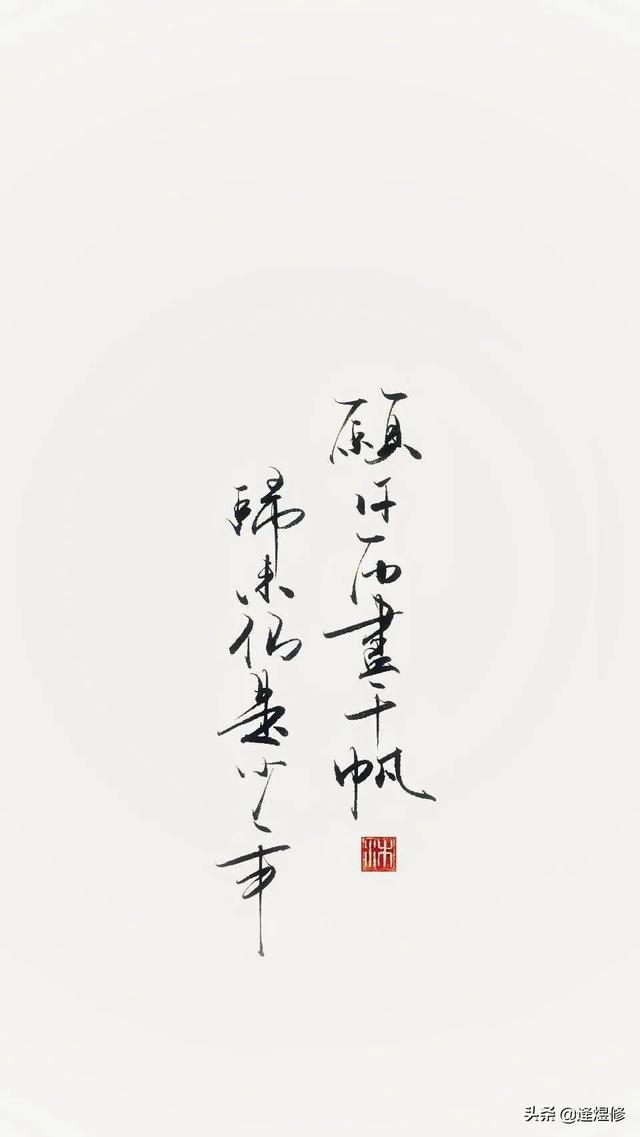 願你历盡千帆
歸来仍是少年
头条 @逢煜修